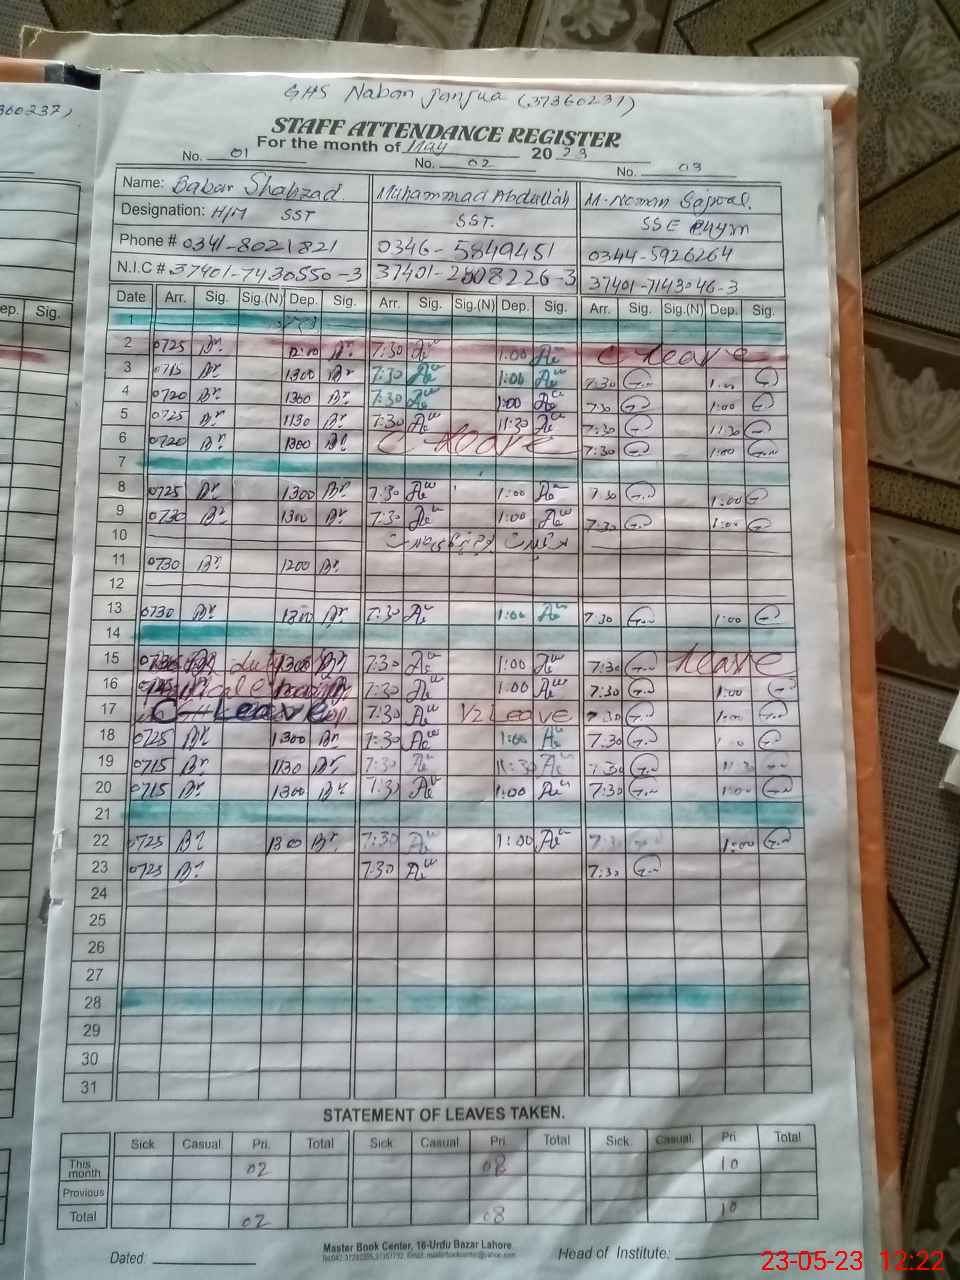 360237)
GHS Naban Janjua (37360237)
STAFF ATTENDANCE REGISTER
For the month of May 2023
No. 01 No. 02 No. 03
Name: Babar Shahzad. Muhammad Abdullah M. Noman
Designation: H/M SST SST. SSE
Phone # 0341-8021821 0346-5849451 0344-5926264
N.I.C # 37401-7430550-3 37401-2808226-3 37401-7143046-3
ep. Sig. Date Arr. Sig. Sig.(N) Dep. Sig. Arr. Sig. Sig.(N) Dep. Sig. Arr. Sig. Sig.(N) Dep. Sig.
1
2 0725 7:30 1:00 C leave
3 0715 1300 7:30 1:00 7:30
4 0720 1300 7:30 1:00 7:30 1:00
5 0725 1130 7:30 11:30 7:30 11:30
6 0720 1300 C leave 7:30 1:00
7
8 0725 1300 7:30 1:00 7:30 1:00
9 0730 1300 7:30 1:00 7:30 1:00
10
11 0730 1200
12
13 0730 1300 7:30 1:00 7:30 1:00
14
15 1300 7:30 1:00 7:30 leave
16 7:30 1:00 7:30 1:00
17 C-Leave 7:30 1/2 Leave 7:30 1:00
18 0725 1300 7:30 1:00 7:30
19 0715 1130 7:30 11:30 7:30 11:30
20 0715 1300 7:30 1:00 7:30 1:00
21
22 0725 1300 7:30 1:00 7:3 1:00
23 0725 7:30 7:30
24
25
26
27
28
29
30
31
STATEMENT OF LEAVES TAKEN.
Sick Casual Pri. Total Sick Casual Pri. Total Sick. Casual. Pri. Total
This month 02 08 10
Previous
Total 02 08 10
Dated: Master Book Center, 16-Urdu Bazar Lahore. Head of Institute:
23-05-23 12:22